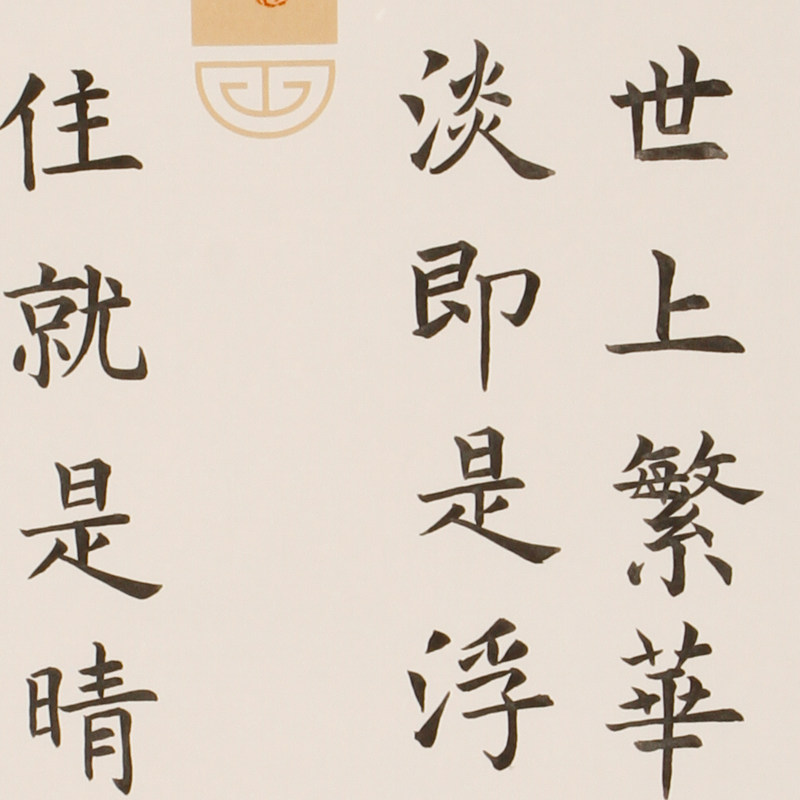 世上繁華
淡即是浮
住就是晴